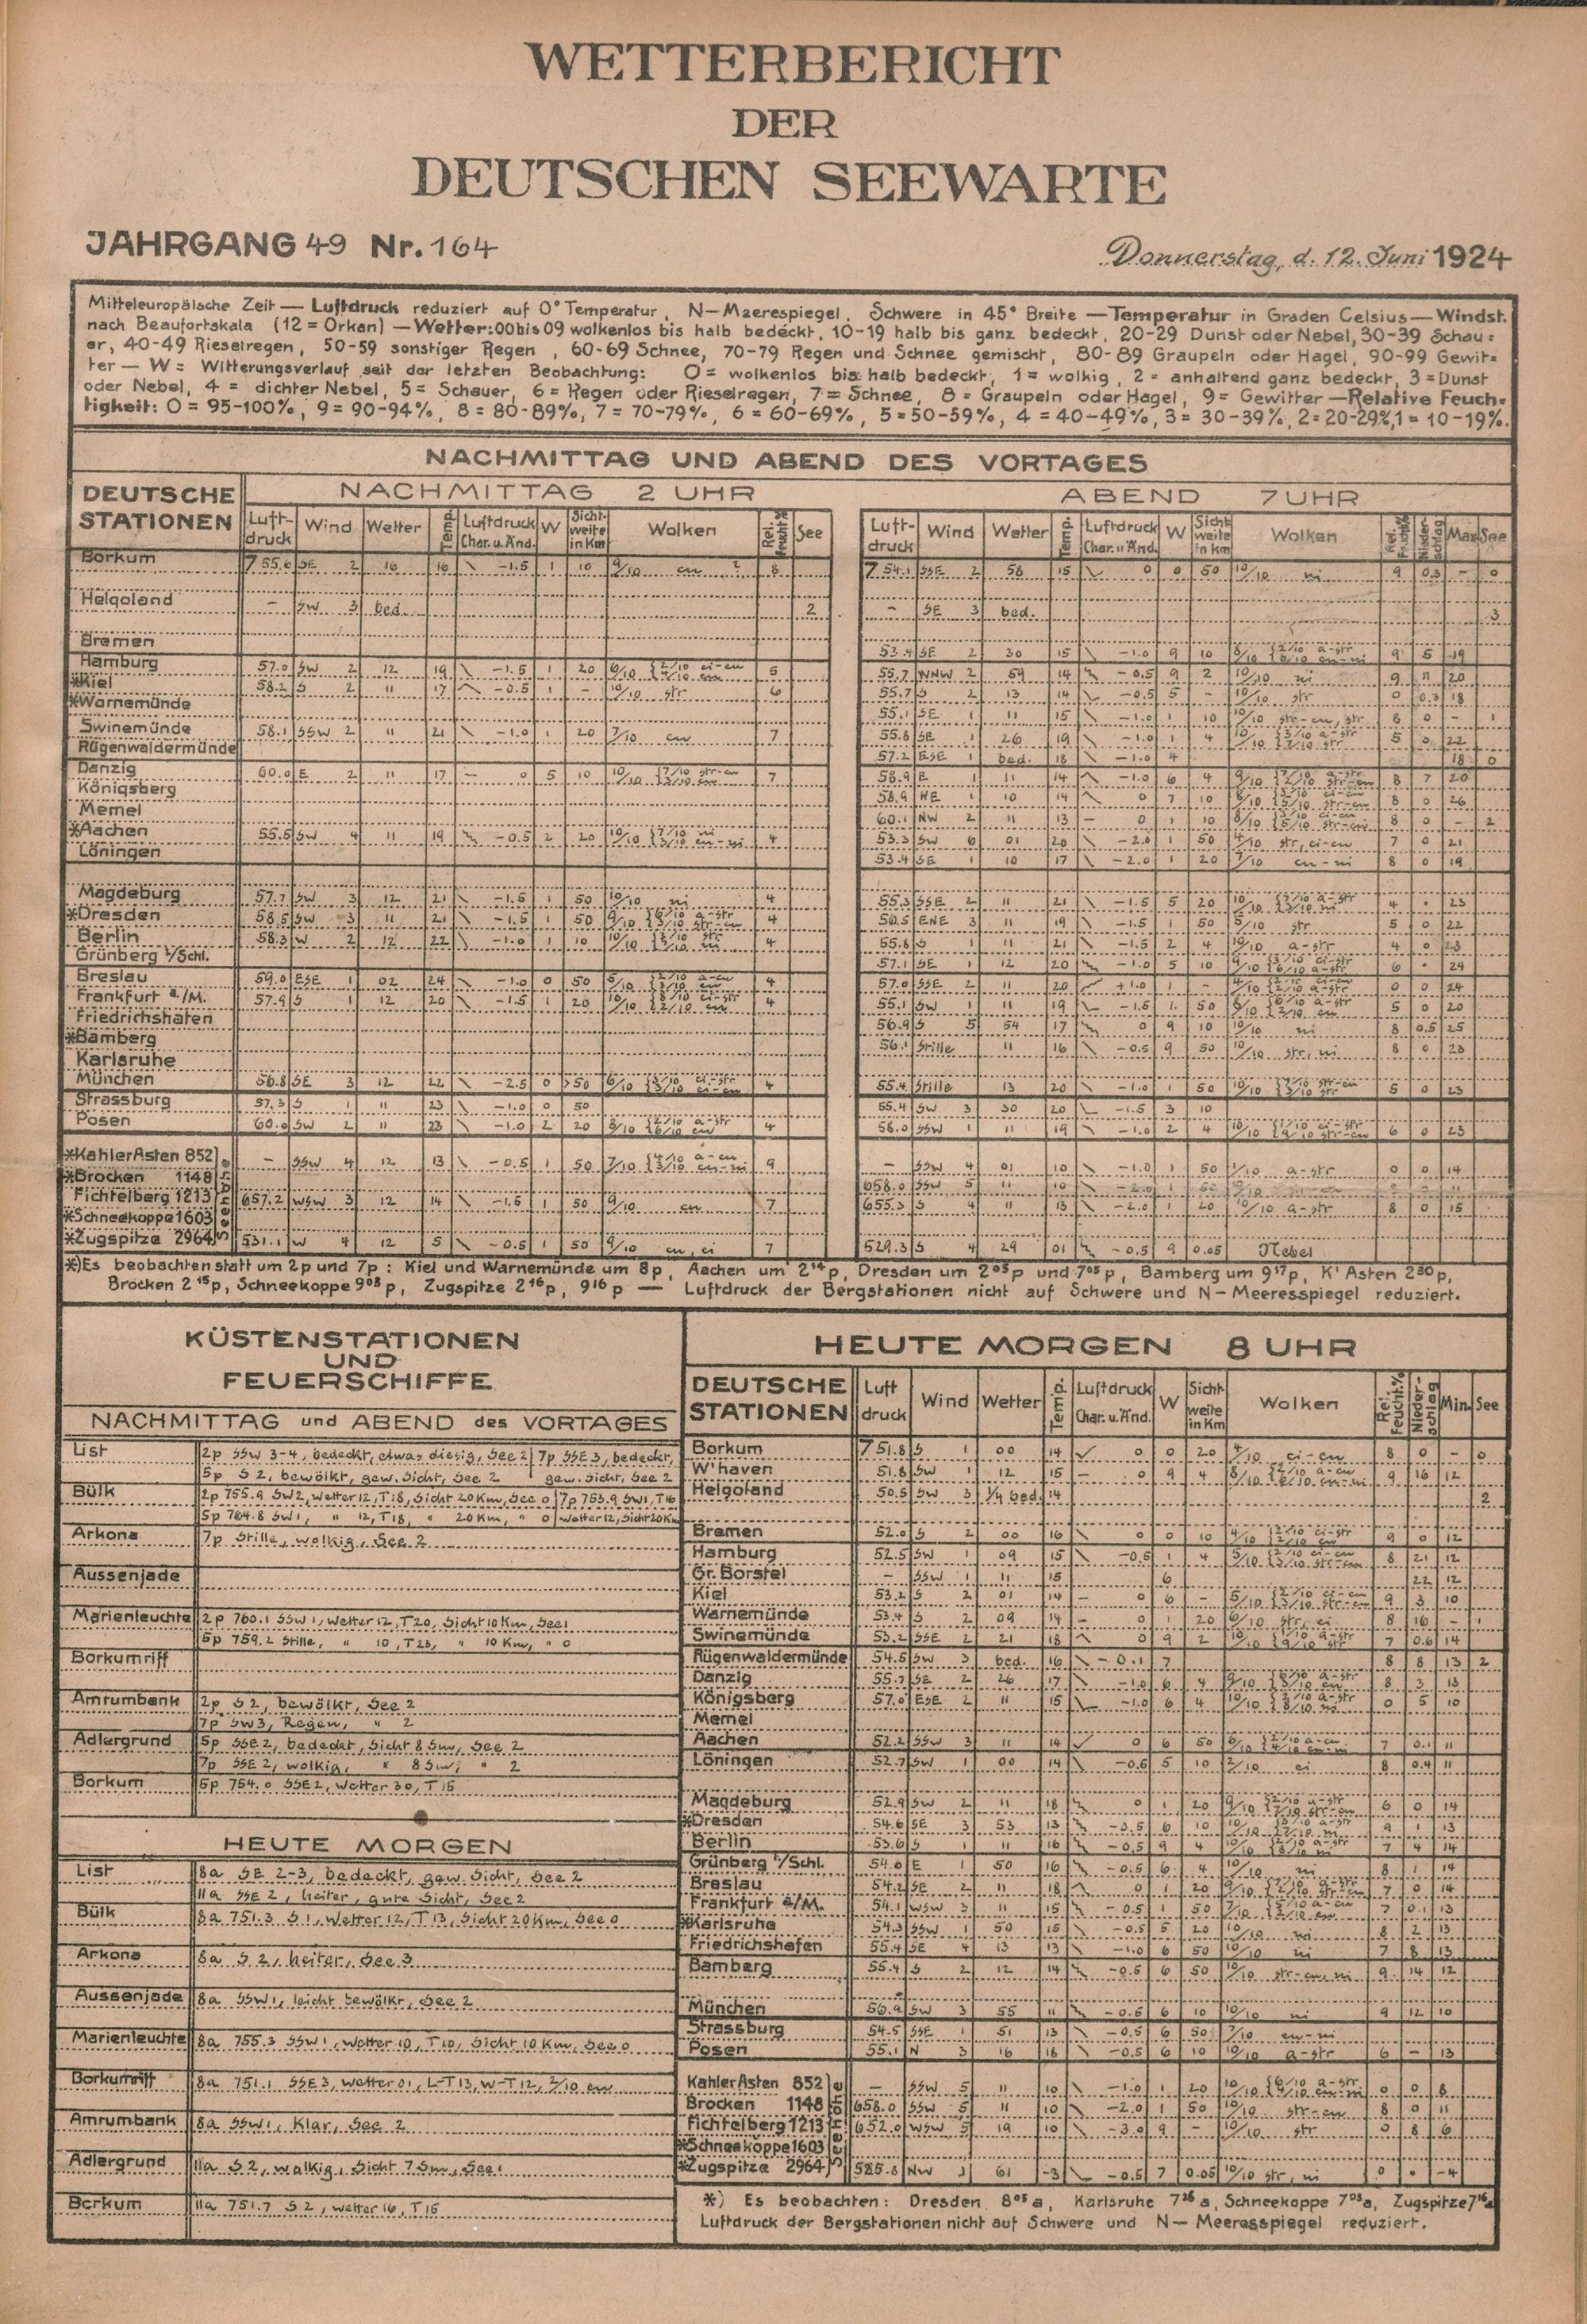 WETTERBERICHT
DER
DEUTSCHEN SEEWARTE
JAHRGANG 49 Nr. 164
Donnerstag, d. 12. Juni 1924
Mitteleuropäische Zeit — Luftdruck reduziert auf 0° Temperatur, N—Meerespiegel, Schwere in 45° Breite — Temperatur in Graden Celsius — Windst.
nach Beaufortskala (12 = Orkan) — Wetter: 00 bis 09 wolkenlos bis halb bedeckt, 10-19 halb bis ganz bedeckt, 20-29 Dunst oder Nebel, 30-39 Schau=
er, 40-49 Rieselregen, 50-59 sonstiger Regen, 60-69 Schnee, 70-79 Regen und Schnee gemischt, 80-89 Graupeln oder Hagel, 90-99 Gewit=
ter — W = Witterungsverlauf seit der letzten Beobachtung: 0 = wolkenlos bis halb bedeckt, 1 = wolkig, 2 = anhaltend ganz bedeckt, 3 = Dunst
oder Nebel, 4 = dichter Nebel, 5 = Schauer, 6 = Regen oder Rieselregen, 7 = Schnee, 8 = Graupeln oder Hagel, 9 = Gewitter — Relative Feuch=
tigkeit: 0 = 95-100%, 9 = 90-94%, 8 = 80-89%, 7 = 70-79%, 6 = 60-69%, 5 = 50-59%, 4 = 40-49%, 3 = 30-39%, 2 = 20-29%, 1 = 10-19%.
NACHMITTAG UND ABEND DES VORTAGES
DEUTSCHE STATIONEN
NACHMITTAG 2 UHR
ABEND 7 UHR
Luft-druck Wind Wetter Temp. Luftdruck Char. u. Änd. W Sicht-weite in Km Wolken Rel. Feucht% See
Luft-druck Wind Wetter Temp. Luftdruck Char. u. Änd. W Sicht weite in km Wolken Rel. Feucht% Nieder-schlag Max See
Borkum 755.6 SE 2 16 16 -1.5 1 10 9/10 cu 8 754.1 SSE 2 58 15 0 0 50 10/10 ni 9 0.3 - 0
Helgoland - SW 3 bed. 2 - SE 3 bed. 3
Bremen 53.4 SE 2 30 15 -1.0 9 10 9 5 19
Hamburg 57.0 SW 2 12 19 -1.5 1 20 5 55.7 WNW 2 59 14 -0.5 9 2 10/10 ni 9 11 20
*Kiel 58.2 S 2 11 17 -0.5 1 - 10/10 str 6 55.7 S 2 13 14 -0.5 5 - 10/10 str 0 0.3 18
*Warnemünde 55.1 SE 1 11 15 -1.0 1 10 10/10 str-cu, str 8 0 - 1
Swinemünde 58.1 SSW 2 11 21 -1.0 1 20 7/10 cu 7 55.8 SE 1 26 19 -1.0 1 4 5 0 22
Rügenwaldermünde 57.2 ESE 1 bed. 18 -1.0 4 18 0
Danzig 60.0 E 2 11 17 - 0 5 10 7 58.9 E 1 11 14 -1.0 6 4 8 7 20
Königsberg 58.9 NE 1 10 14 0 7 10 8 0 26
Memel 60.1 NW 2 11 13 - 0 1 10 8 0 - 2
*Aachen 55.5 SW 4 11 19 -0.5 2 20 4 53.3 SW 6 01 20 -2.0 1 50 4/10 str, ci-cu 7 0 21
Löningen 53.4 SE 1 10 17 -2.0 1 20 7/10 cu-ni 8 0 19
Magdeburg 57.7 SW 3 12 21 -1.5 1 50 10/10 ni 4 55.3 SSE 2 11 21 -1.5 5 20 4 . 23
*Dresden 58.5 SW 3 11 21 -1.5 1 50 4 ENE 3 11 19 -1.5 1 50 5/10 str 5 0 22
Berlin 58.3 W 2 12 22 -1.0 1 10 4 55.8 S 1 11 21 -1.5 2 4 10/10 a-str 4 0 23
Grünberg i/Schl. 57.1 SE 1 12 20 -1.0 5 10 6 . 24
Breslau 59.0 ESE 1 02 24 -1.0 0 50 4 57.0 SSE 2 11 20 +1.0 1 - 0 0 24
Frankfurt a/M. 57.9 S 1 12 20 -1.5 1 20 4 55.1 SW 1 11 19 -1.5 1 50 5 0 20
Friedrichshafen 56.9 S 5 54 17 0 9 10 10/10 ni 8 0.5 25
*Bamberg 56.1 Stille 11 16 -0.5 9 50 10/10 str, ni 8 0 23
Karlsruhe
München 56.8 SE 3 12 22 -2.5 0 >50 4 55.4 Stille 13 20 -1.0 1 50 5 0 23
Strassburg 57.3 S 1 11 23 -1.0 0 50 55.4 SW 3 30 20 -1.5 3 10
Posen 60.0 SW 2 11 23 -1.0 2 20 4 58.0 SSW 1 11 19 -1.0 2 4 6 0 23
*Kahler Asten 852 - SSW 4 12 13 -0.5 1 50 9 - SSW 4 01 10 -1.0 1 50 1/10 a-str 0 0 14
*Brocken 1148 658.0 SSW 5 11 10
Fichtelberg 1213 657.2 WSW 3 12 14 -1.5 1 50 9/10 cu 7 655.3 S 4 11 13 -2.0 1 20 10/10 a-str 8 0 15
*Schneekoppe 1603
*Zugspitze 2964 531.1 W 4 12 5 -0.5 1 50 9/10 cu, ci 7 529.3 S 4 29 01 -0.5 9 0.05 Nebel
Seehöhe
*) Es beobachten statt um 2p und 7p: Kiel und Warnemünde um 8p, Aachen um 2 14 p, Dresden um 2 05 p und 7 05 p, Bamberg um 9 17 p, K' Asten 2 30 p,
Brocken 2 15 p, Schneekoppe 9 03 p, Zugspitze 2 16 p, 9 16 p — Luftdruck der Bergstationen nicht auf Schwere und N—Meeresspiegel reduziert.
KÜSTENSTATIONEN
UND
FEUERSCHIFFE
NACHMITTAG und ABEND des VORTAGES
List 2p SSW 3-4, bedeckt, etwas diesig, See 2 | 7p SSE 3, bedeckt,
5p S 2, bewölkt, gew. Sicht, See 2 | gew. Sicht, See 2
Bülk 2p 755.9 SW2, Wetter 12, T18, Sicht 20 Km, See 0 | 7p 753.9 SW1, T16
5p 764.8 SW1, " 12, T18, " 20 Km, " 0 | Wetter 12, Sicht 20 Km
Arkona 7p Stille, wolkig, See 2
Aussenjade
Marienleuchte 2p 760.1 SSW 1, Wetter 12, T20, Sicht 10 Km, See 1
5p 759.2 Stille, " 10, T23, " 10 Km, " 0
Borkumriff
Amrumbank 2p S 2, bewölkt, See 2
7p SW3, Regen, " 2
Adlergrund 5p SSE 2, bedeckt, Sicht 8 Sm, See 2
7p SSE 2, wolkig, " 8 Sm, " 2
Borkum 5p 754.0 SSE2, Wetter 30, T15
HEUTE MORGEN
List 8a SE 2-3, bedeckt, gew. Sicht, See 2
11a SSE 2, heiter, gute Sicht, See 2
Bülk 8a 751.3 S 1, Wetter 12, T13, Sicht 20 Km, See 0
Arkona 8a S 2, heiter, See 3
Aussenjade 8a SSW1, leicht bewölkt, See 2
Marienleuchte 8a 755.3 SSW 1, Wetter 10, T10, Sicht 10 Km, See 0
Borkumriff 8a 751.1 SSE 3, Wetter 01, L-T13, W-T12, 2/10 cu
Amrumbank 8a SSW1, Klar, See 2
Adlergrund 11a S 2, wolkig, Sicht 7 Sm, See 1
Borkum 11a 751.7 S 2, Wetter 16, T15
HEUTE MORGEN 8 UHR
DEUTSCHE STATIONEN Luft druck Wind Wetter Temp. Luftdruck Char. u. Änd. W Sicht weite in Km Wolken Rel. Feucht.% Nieder-schlag Min. See
Borkum 751.8 S 1 00 14 0 0 20 4/10 ci-cu 8 0 - 0
W'haven 51.8 SW 1 12 15 - 0 9 4 9 16 12
Helgoland 50.5 SW 3 1/4 bed. 14 2
Bremen 52.0 S 2 00 16 0 0 10 9 0 12
Hamburg 52.5 SW 1 09 15 -0.5 1 4 8 21 12
Gr. Borstel - SSW 1 11 15 6 22 12
Kiel 53.2 S 2 01 14 - 0 6 - 9 3 10
Warnemünde 53.4 S 2 09 14 - 0 1 20 6/10 str, ci 8 16 - 1
Swinemünde 53.2 SSE 2 21 18 0 9 2 7 0.6 14
Rügenwaldermünde 54.5 SW 3 bed. 16 -0.1 7 8 8 13 2
Danzig 55.7 SE 2 26 17 -1.0 6 4 8 3 13
Königsberg 57.0 ESE 2 11 15 -1.0 6 4 0 5 10
Memel
Aachen 52.2 SSW 3 11 14 0 6 50 7 0.1 11
Löningen 52.7 SW 1 00 14 -0.6 5 10 2/10 ci 8 0.4 11
Magdeburg 52.9 SW 2 11 18 0 1 20 6 0 14
*Dresden 54.6 SE 3 53 13 -3.5 6 10 9 1 13
Berlin 53.6 S 1 11 16 -0.5 9 4 7 4 14
Grünberg i/Schl. 54.0 E 1 50 16 -0.5 6 4 10/10 ni 8 1 14
Breslau 54.2 SE 2 11 18 0 1 20 7 0 14
Frankfurt a/M. 54.1 WSW 3 11 15 -0.5 1 50 7 0.1 13
*Karlsruhe 54.3 SSW 1 50 15 -0.5 5 20 10/10 ni 8 2 13
Friedrichshafen 55.4 SE 4 13 13 -1.0 6 50 10/10 ni 7 8 13
Bamberg 55.4 S 2 12 14 -0.5 6 50 10/10 str-cu, ni 9 14 12
München 56.9 SW 3 55 11 -0.6 6 10 10/10 ni 9 12 10
Strassburg 54.5 SSE 1 51 13 -0.5 6 50 7/10 cu-ni
Posen 55.1 N 3 16 18 -0.5 6 10 10/10 a-str 6 - 13
Kahler Asten 852 - SSW 5 11 10 -1.0 1 20 0 0 8
Brocken 1148 658.0 SSW 5 11 10 -2.0 1 50 10/10 str-cu 8 0 11
Fichtelberg 1213 652.0 WSW 5 19 10 -3.0 9 - 10/10 str 0 8 6
*Schneekoppe 1603
*Zugspitze 2964 525.8 NW 3 61 -3 -0.5 7 0.05 10/10 str, ni 0 . -4
Seehöhe
*) Es beobachten: Dresden 8 05 a, Karlsruhe 7 26 a, Schneekoppe 7 03 a, Zugspitze 7 16 a
Luftdruck der Bergstationen nicht auf Schwere und N—Meeresspiegel reduziert.